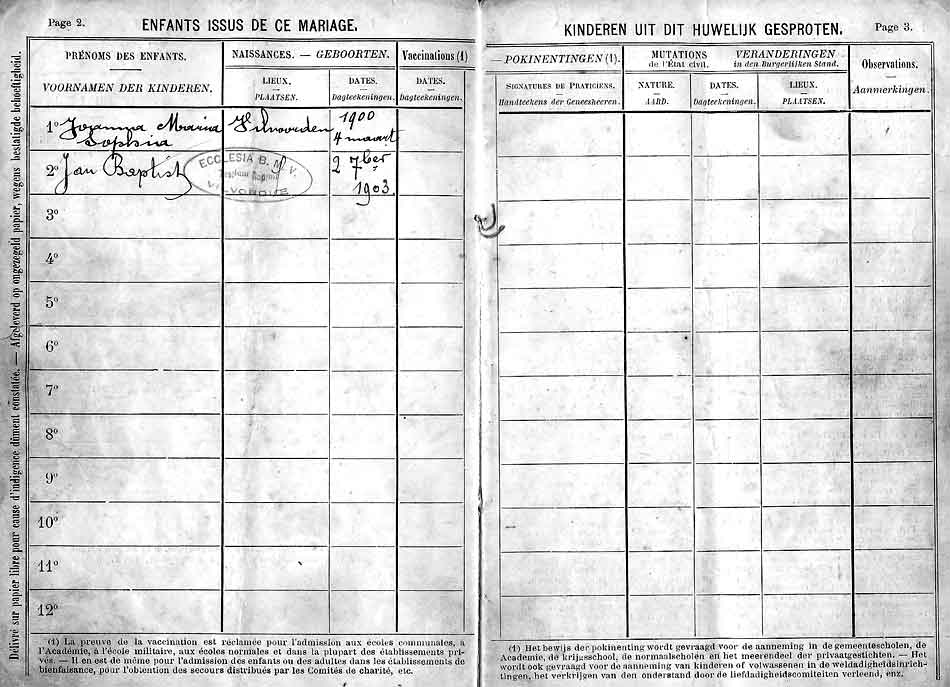 Page 2.
ENFANTS ISSUS DE CE MARIAGE.
PRÉNOMS DES ENFANTS.
VOORNAMEN DER KINDEREN.
NAISSANCES. — GEBOORTEN.
LIEUX.
PLAATSEN.
DATES.
Dagteekeningen.
Vaccinations (1)
DATES.
Dagteekeningen.
1° Joanna Maria Vilvoorden 1900
Sophia 4 maart
2° Jan Baptist 2 7ber
1903
ECCLESIA B. M. V.
VILVORDIÆ
3°
4°
5°
6°
7°
8°
9°
10°
11°
12°
(1) La preuve de la vaccination est réclamée pour l'admission aux écoles communales, à
l'Académie, à l'école militaire, aux écoles normales et dans la plupart des établissements pri-
vés. — Il en est de même pour l'admission des enfants ou des adultes dans les établissements de
bienfaisance, pour l'obtention des secours distribués par les Comités de charité, etc.
Délivré sur papier libre pour cause d'indigence dûment constatée. — Afgeleverd op ongezegeld papier, wegens bestatigde behoeftigheid.
KINDEREN UIT DIT HUWELIJK GESPROTEN.
Page 3.
— POKINENTINGEN (1).
SIGNATURES DE PRATICIENS.
Handteekens der Geneesheeren.
MUTATIONS
de l'État civil.
VERANDERINGEN
in den Burgerlijken Stand.
NATURE.
AARD.
DATES.
Dagteekeningen.
LIEUX.
PLAATSEN.
Observations.
Aanmerkingen.
(1) Het bewijs der pokinenting wordt gevraagd voor de aanneming in de gemeentescholen, de
Academie, de krijgsschool, de normaalscholen en het meerendeel der privaatgestichten. — Het
wordt ook gevraagd voor de aanneming van kinderen of volwassenen in de weldadigheidsinrich-
tingen, het verkrijgen van den onderstand door de liefdadigheidscomiteiten verleend, enz.